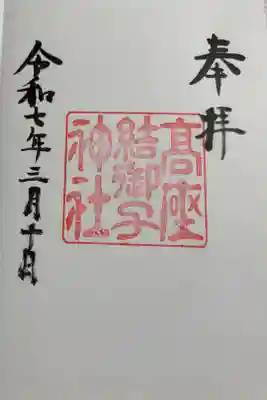 奉拝
高座
結御子
神社
令和七年三月十日